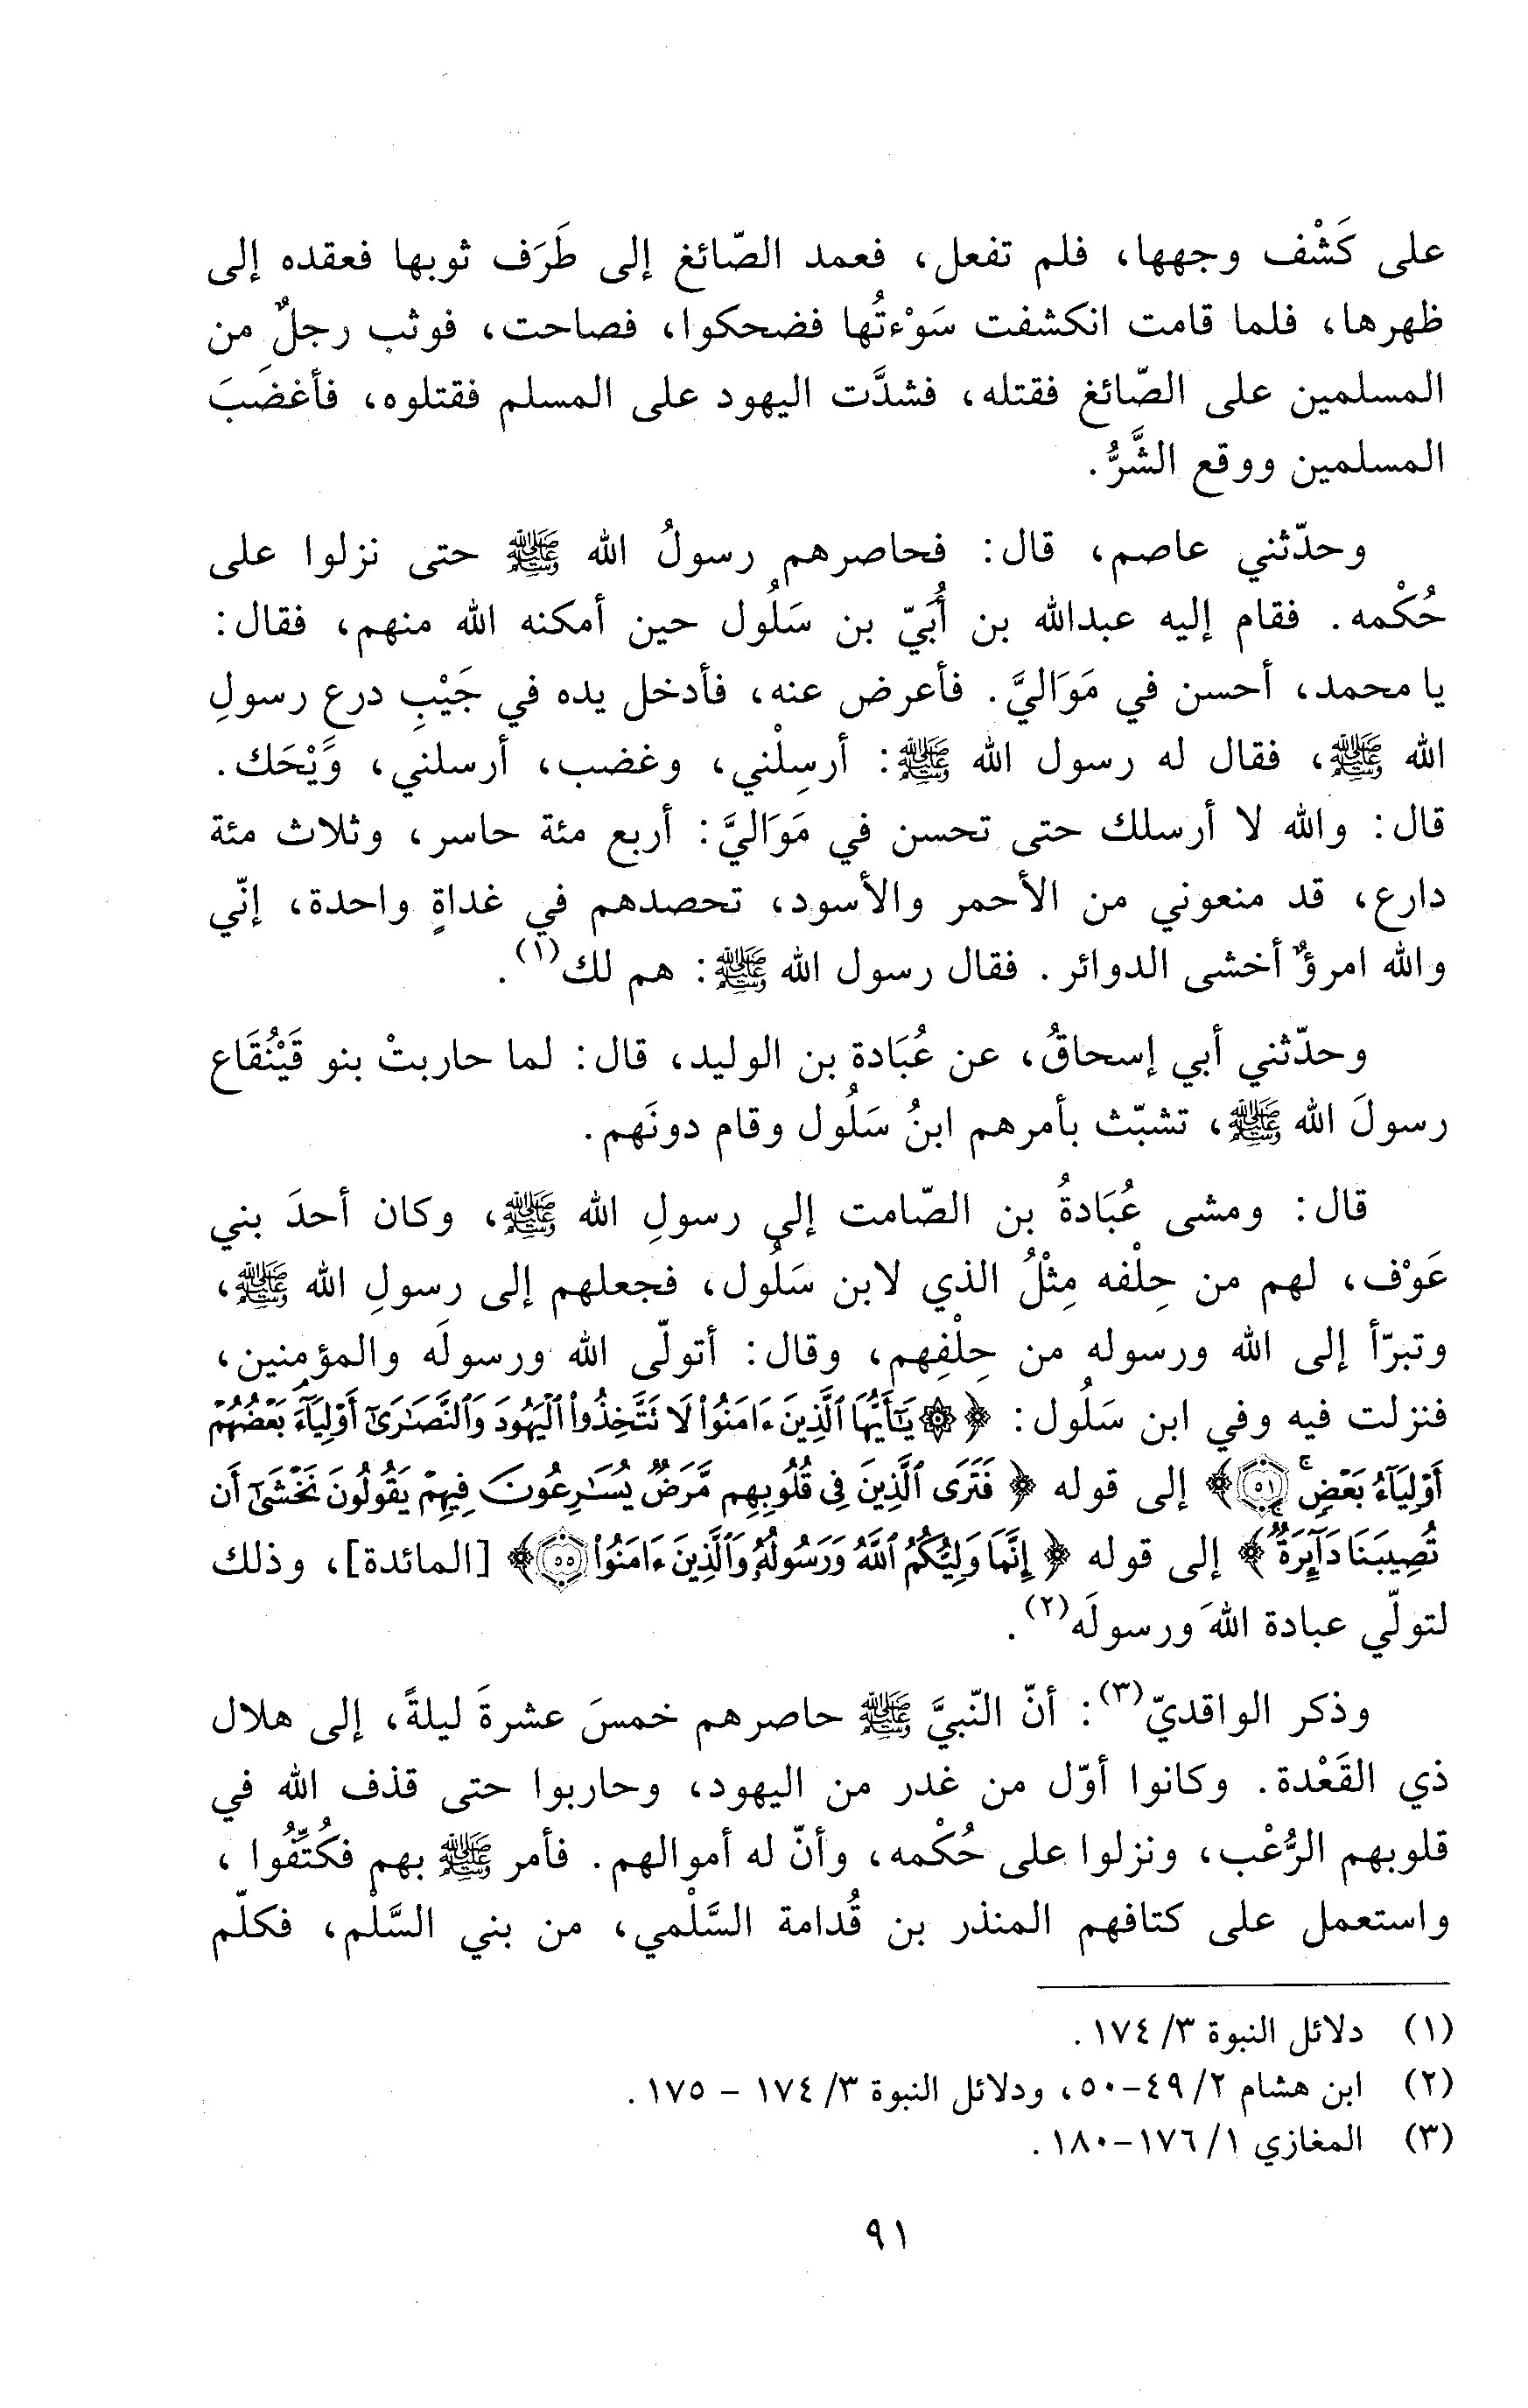 على كَشْف وجهها، فلم تفعل، فعمد الصّائغ إلى طَرَف ثوبها فعقده إلى
ظهرها، فلما قامت انكشفت سَوْءتُها فضحكوا، فصاحت، فوثب رجلٌ من
المسلمين على الصّائغ فقتله، فشدَّت اليهود على المسلم فقتلوه، فأغضَبَ
المسلمين ووقع الشَّرُّ.
وحدّثني عاصم، قال: فحاصرهم رسولُ الله ﷺ حتى نزلوا على
حُكْمه. فقام إليه عبدالله بن أُبَيّ بن سَلُول حين أمكنه الله منهم، فقال:
يا محمد، أحسن في مَوَاليَّ. فأعرض عنه، فأدخل يده في جَيْبِ درع رسولِ
الله ﷺ، فقال له رسول الله ﷺ: أرسِلْني، وغضب، أرسلني، وَيْحَك.
قال: والله لا أرسلك حتى تحسن في مَوَاليَّ: أربع مئة حاسر، وثلاث مئة
دارع، قد منعوني من الأحمر والأسود، تحصدهم في غداةٍ واحدة، إنّي
والله امرؤٌ أخشى الدوائر. فقال رسول الله ﷺ: هم لك(١).
وحدّثني أبي إسحاقُ، عن عُبَادة بن الوليد، قال: لما حاربتْ بنو قَيْنُقَاع
رسولَ الله ﷺ، تشبّث بأمرهم ابنُ سَلُول وقام دونَهم.
قال: ومشى عُبَادةُ بن الصّامت إلى رسولِ الله ﷺ، وكان أحدَ بني
عَوْف، لهم من حِلْفه مِثْلُ الذي لابن سَلُول، فجعلهم إلى رسولِ الله ﷺ،
وتبرّأ إلى الله ورسوله من حِلْفِهم، وقال: أتولّى الله ورسولَه والمؤمنين،
فنزلت فيه وفي ابن سَلُول: ﴿۞ يَٰٓأَيُّهَا ٱلَّذِينَ ءَامَنُوا۟ لَا تَتَّخِذُوا۟ ٱلْيَهُودَ وَٱلنَّصَٰرَىٰٓ أَوْلِيَآءَ بَعْضُهُمْ
أَوْلِيَآءُ بَعْضٍ ۚ ۝٥١﴾ إلى قوله ﴿فَتَرَى ٱلَّذِينَ فِى قُلُوبِهِم مَّرَضٌ يُسَٰرِعُونَ فِيهِمْ يَقُولُونَ نَخْشَىٰٓ أَن
تُصِيبَنَا دَآئِرَةٌ ۚ﴾ إلى قوله ﴿إِنَّمَا وَلِيُّكُمُ ٱللَّهُ وَرَسُولُهُۥ وَٱلَّذِينَ ءَامَنُوا۟ ۝٥٥﴾ [المائدة]، وذلك
لتولّي عبادة اللهَ ورسولَه(٢).
وذكر الواقديّ(٣): أنّ النّبيَّ ﷺ حاصرهم خمسَ عشرةَ ليلةً، إلى هلال
ذي القَعْدة. وكانوا أوّل من غدر من اليهود، وحاربوا حتى قذف الله في
قلوبهم الرُّعْب، ونزلوا على حُكْمه، وأنّ له أموالهم. فأمر ﷺ بهم فكُتِّفُوا،
واستعمل على كتافهم المنذر بن قُدامة السَّلْمي، من بني السَّلْم، فكلّم
(١) دلائل النبوة ٣/ ١٧٤.
(٢) ابن هشام ٢/ ٤٩-٥٠، ودلائل النبوة ٣/ ١٧٤ - ١٧٥.
(٣) المغازي ١/ ١٧٦-١٨٠.
٩١